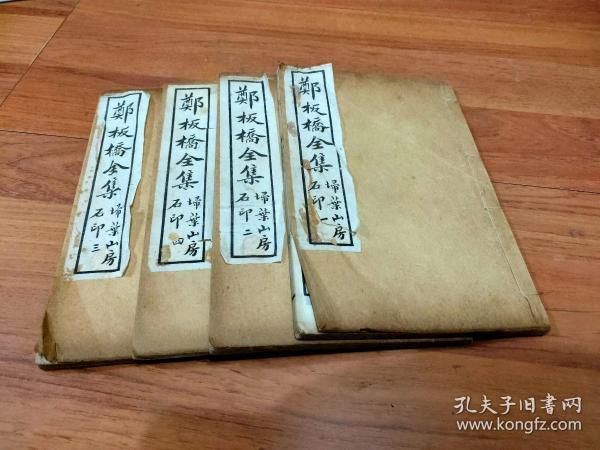 鄭板橋全集
掃葉山房
石印三
鄭板橋全集
掃葉山房
石印四
鄭板橋全集
掃葉山房
石印二
鄭板橋全集
掃葉山房
石印一
孔夫子旧书网
www.kongfz.com